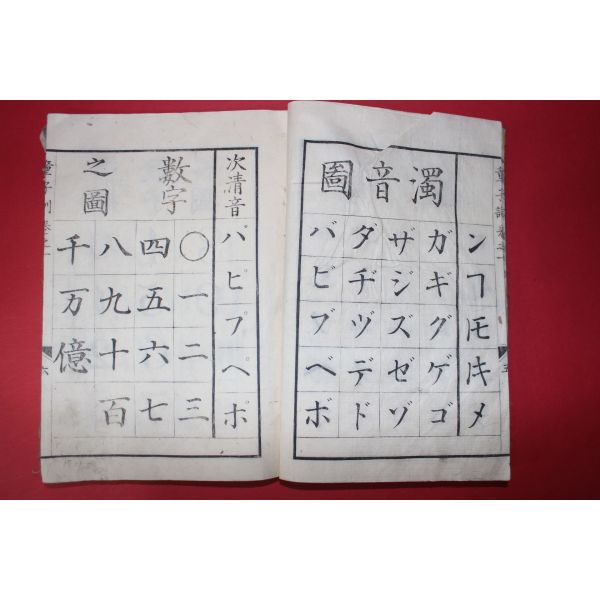 ンヿ𪜈メ
濁音圖
ガギグゲゴ
ザジズゼゾ
ダヂヅデド
バビブベボ
次清音
パピプペポ
數字之圖
〇一二三
四五六七
八九十百
千万億
六